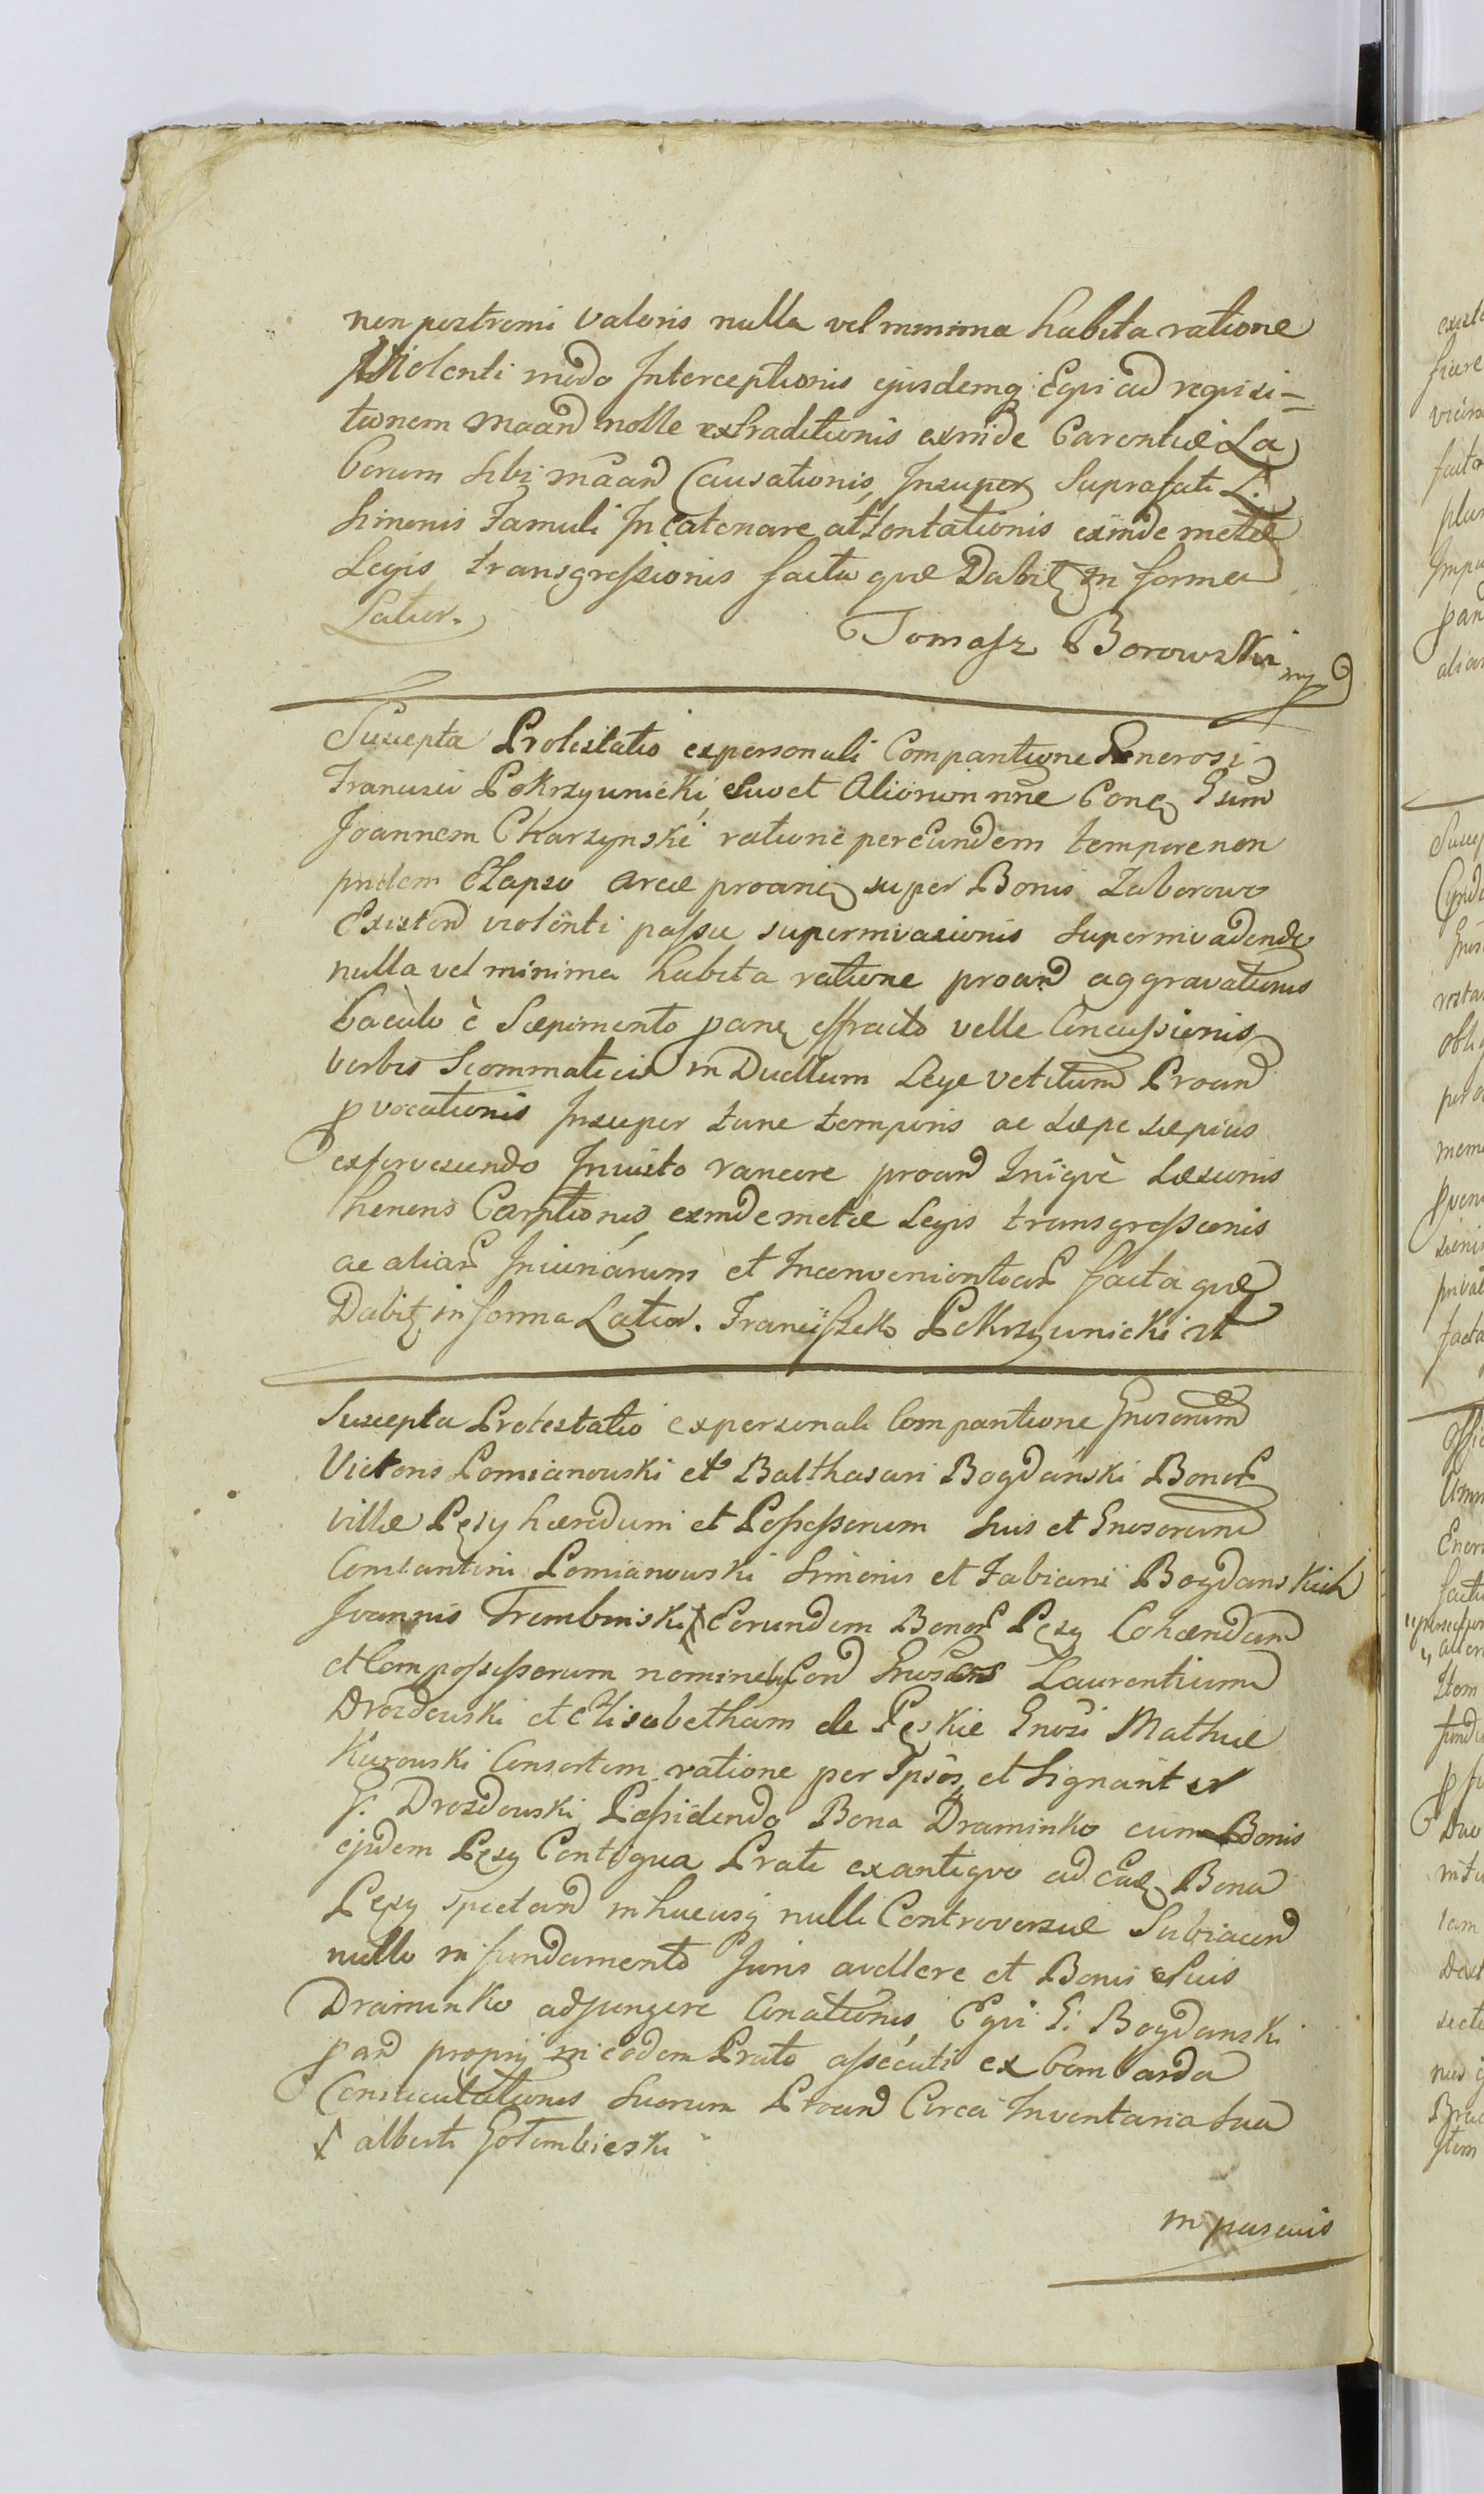 non postremi valoris nulla vel minima habita ratione
Violenti modo Interceptionis ejusdemq Eqvi ad reqvisi=
tionem maand nolle extraditionis exinde Carentiæ La
borum sibi maand Causationis, Insuper Suprafati L.
Simonis Famuli Incatenare attentationis exinde metæ
Legis transgressionis facta qvæ Dabit in forma
Latior.
Tomasz Borowski mp
Suscepta Protestatio ex personali Comparitione Generosi
Francisci Pokrzywnicki, Suo et Aliorum nne Conq Gsum
Joannem Charzynski ratione per Eundem tempore non
pridem Elapso areæ proaneq super Bonis Zaborowo
Existen violenti passu supermivasionis Supermivadendq
nulla vel minima habita ratione proand aggravationis
baculo è Sæpimento paneq effracto velle Concussionis,
verbis Scommaticis in Duellum Lege vetitum Proand
pvocationis Insuper tunc temporis ac sæpe sæpius
exfervescendo Inviso rancore proand Iniqvè Læsionis
honoris Carptionis, exinde metæ Legis transgressionis
ac aliar Iniuriarum et Inconvenientiar facta qvæ
Dabit in forma Latior. Franciszek Pokrzywnicki rt
Suscepta Protestatio ex personali Comparitione Gnosorum
Victoris Pomianowski et Balthasari Bogdanski Bonor
villæ Pęsy hæredum et Possessorum suis et Gnosorum
Constantini Pomianowski Simonis et Fabiani Bogdanskich
Joannis Trembinski ⚹ Eorundem Bonor Pęsy Cohæredum
et Compossessorum nominely Cond Gnosos Laurentium
Drozdowski et Elisabetham de Pęskie Gnosi Mathiæ
Kurowski Consortem ratione per Ipsos et Signant er
G. Drozdowski, Possidendo Bona Draminko cum Bonis
ejdem Pęsy Contigua Prati ex antiqvo ad Eaq Bona
Pęsy spectand in hucusq nulli Controversiæ Subiacend
nullo in fundamento Juris avellere et Bonis Suis
Draminko adjungere Conationis, Eqvi G. Bogdanski
pand proprij in eodem Prato assecuti ex bombarda
Consecutationis Suorum Proand Circa Inventaria sua
⚹ alberti Gołembieski
in pascuis